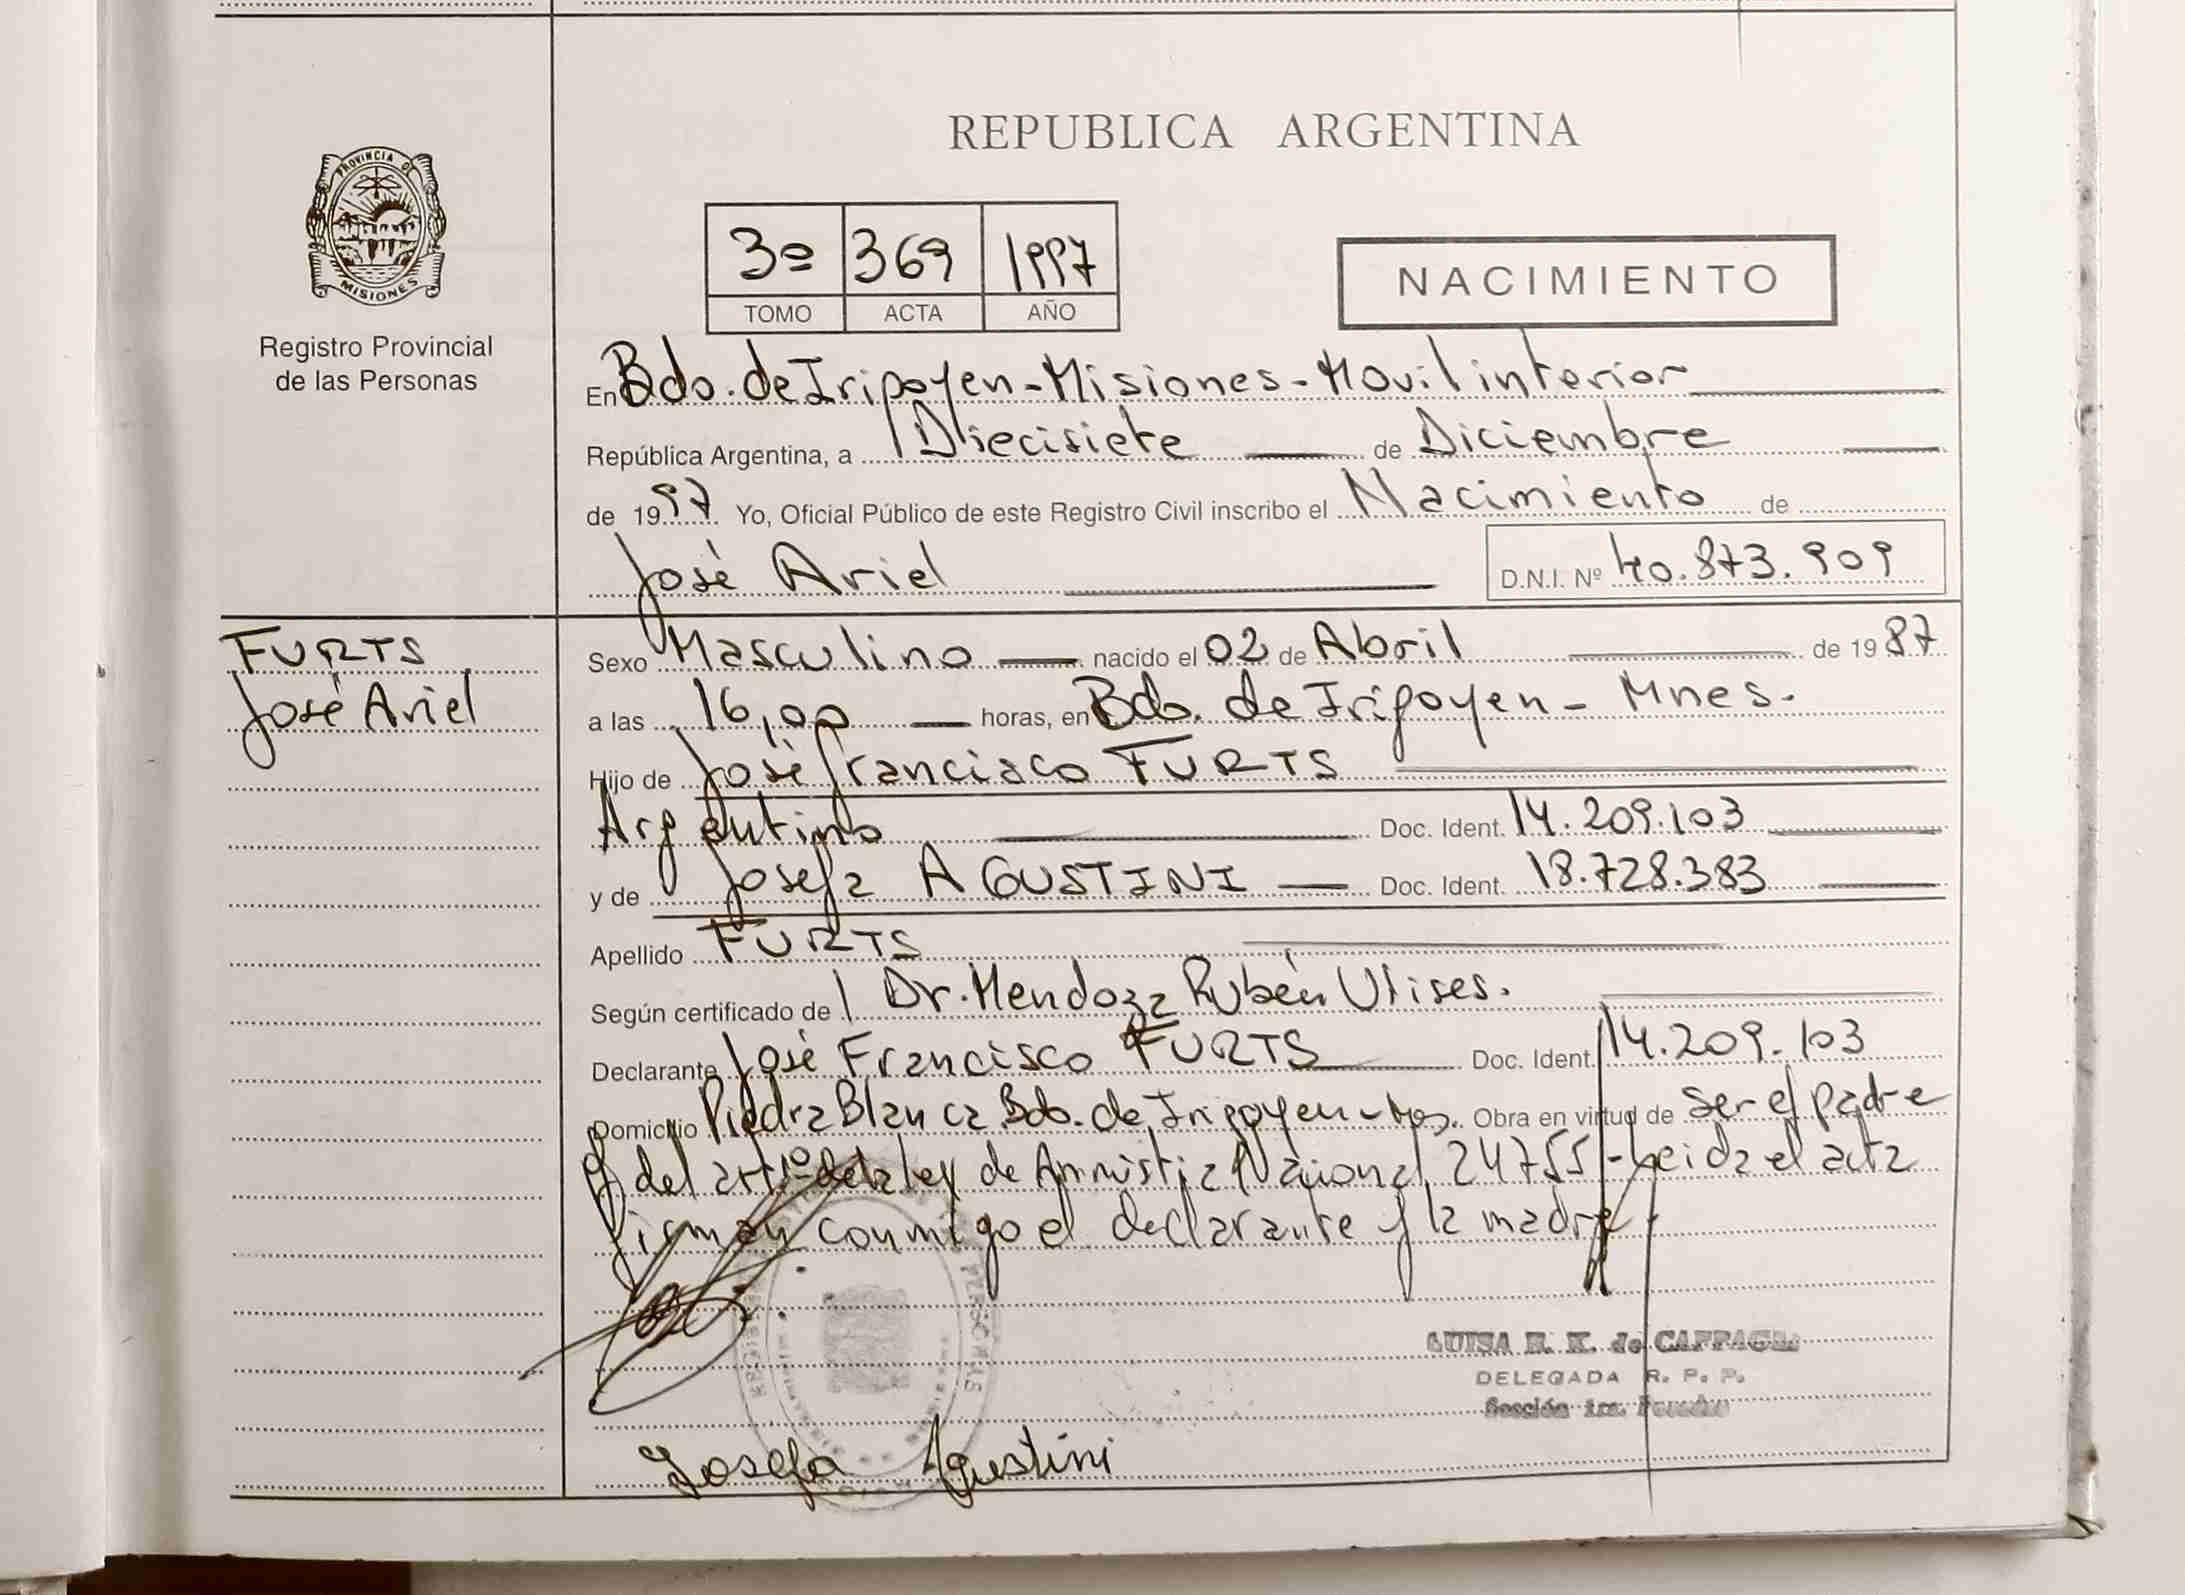 REPUBLICA ARGENTINA
PROVINCIA DE
MISIONES
Registro Provincial
de las Personas
3º 369 1997
TOMO ACTA AÑO
NACIMIENTO
En Bdo. de Iripoyen - Misiones - Movil interior
República Argentina, a Diecisiete de Diciembre
de 1997 Yo, Oficial Público de este Registro Civil inscribo el Nacimiento de
José Ariel D.N.I. Nº 40.873.909
FURTS
José Ariel
Sexo Masculino nacido el 02 de Abril de 1987
a las 16,00 horas, en Bdo. de Iripoyen - Mnes.
Hijo de José Francisco FURTS
Argentino Doc. Ident. 14.209.103
y de Josefa AGUSTINI Doc. Ident. 18.728.383
Apellido FURTS
Según certificado de Dr. Mendoza Rubén Ulises.
Declarante José Francisco FURTS Doc. Ident. 14.209.103
Domicilio Piedra Blanca Bdo. de Iripoyen - Obra en virtud de ser el padre
y del art 1º de la ley de Amnistia Nacional 24755 - Leida el acta
firman conmigo el declarante y la madre.
LUISA R. K. de
DELEGADA R. P. P.
Sección
Josefa Agustini